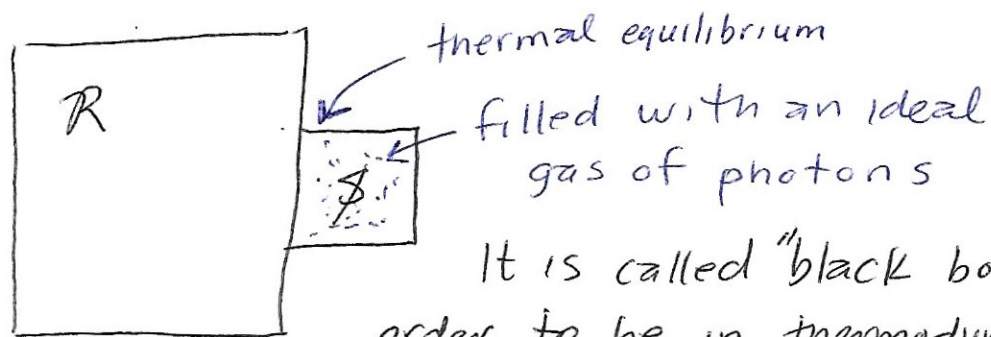 thermal equilibrium
R
filled with an ideal
gas of photons
S
It is called "black bo
order to be in thermodyn